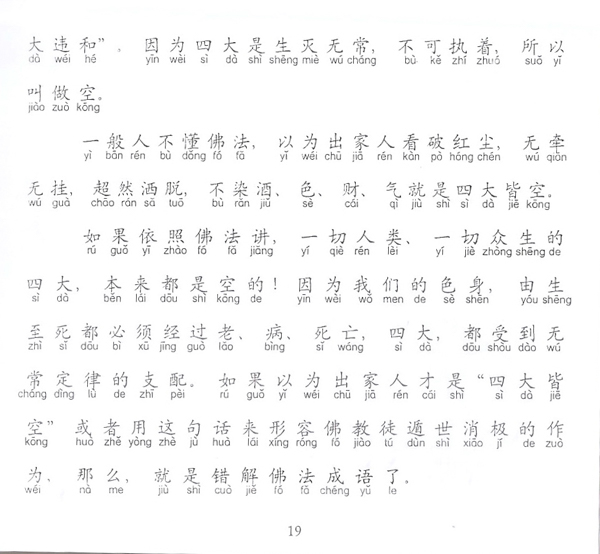 大违和”，因为四大是生灭无常，不可执着，所以
dà wéi hé yīn wèi sì dà shì shēng miè wú cháng bù kě zhí zhuó suǒ yǐ
叫做空。
jiào zuò kōng
一般人不懂佛法，以为出家人看破红尘，无牵
yì bān rén bù dǒng fó fǎ yǐ wéi chū jiā rén kàn pò hóng chén wú qiān
无挂，超然洒脱，不染酒、色、财、气就是四大皆空。
wú guà chāo rán sǎ tuō bù rǎn jiǔ sè cái qì jiù shì sì dà jiē kōng
如果依照佛法讲，一切人类、一切众生的
rú guǒ yī zhào fó fǎ jiǎng yí qiè rén lèi yí jiè zhòng shēng de
四大，本来都是空的！因为我们的色身，由生
sì dà běn lái dōu shì kōng de yīn wèi wǒ men de sè shēn yóu shēng
至死都必须经过老、病、死亡，四大，都受到无
zhì sǐ dōu bì xū jīng guò lǎo bìng sǐ wáng sì dà dōu shòu dào wú
常定律的支配。如果以为出家人才是“四大皆
cháng dìng lǜ de zhī pèi rú guǒ yǐ wéi chū jiā rén cái shì sì dà jiē
空”或者用这句话来形容佛教徒遁世消极的作
kōng huò zhě yòng zhè jù huà lái xíng róng fó jiào tú dùn shì xiāo jí de zuò
为，那么，就是错解佛法成语了。
wéi nà me jiù shì cuò jiě fó fǎ chéng yǔ le
19